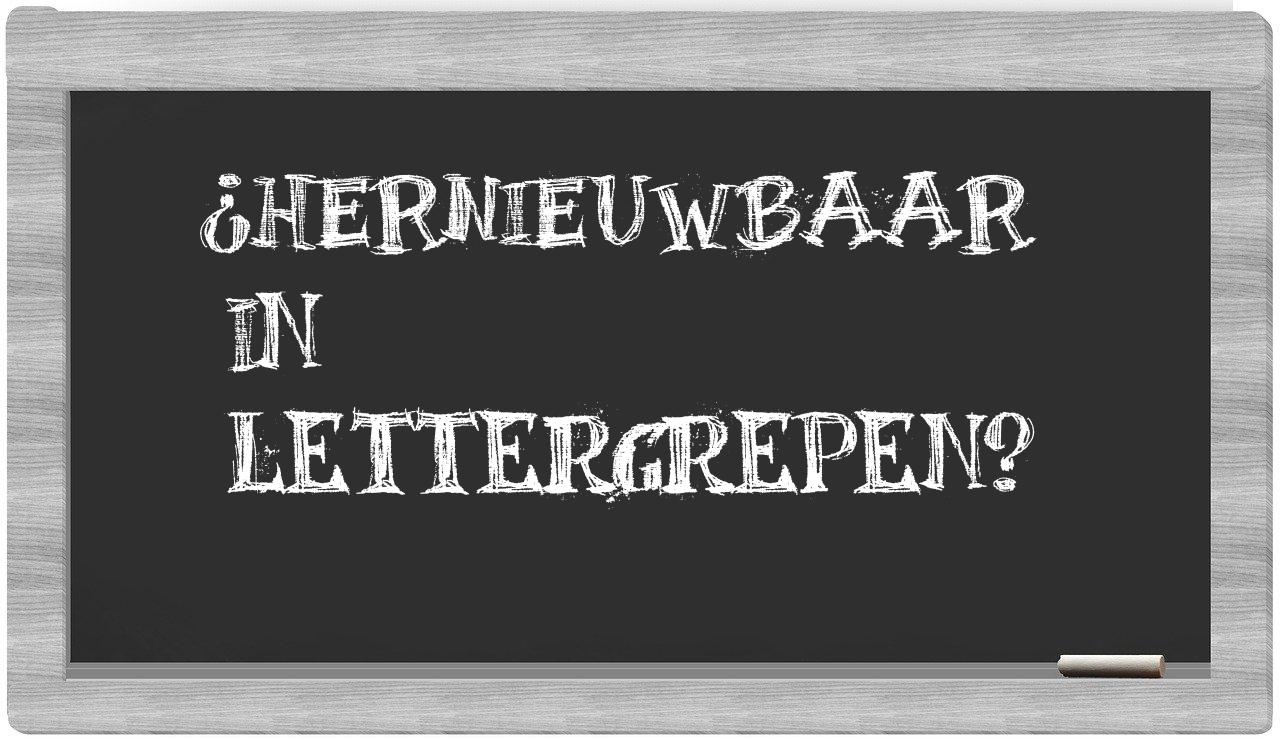 ¿HERNIEUWBAAR
IN
LETTERGREPEN?